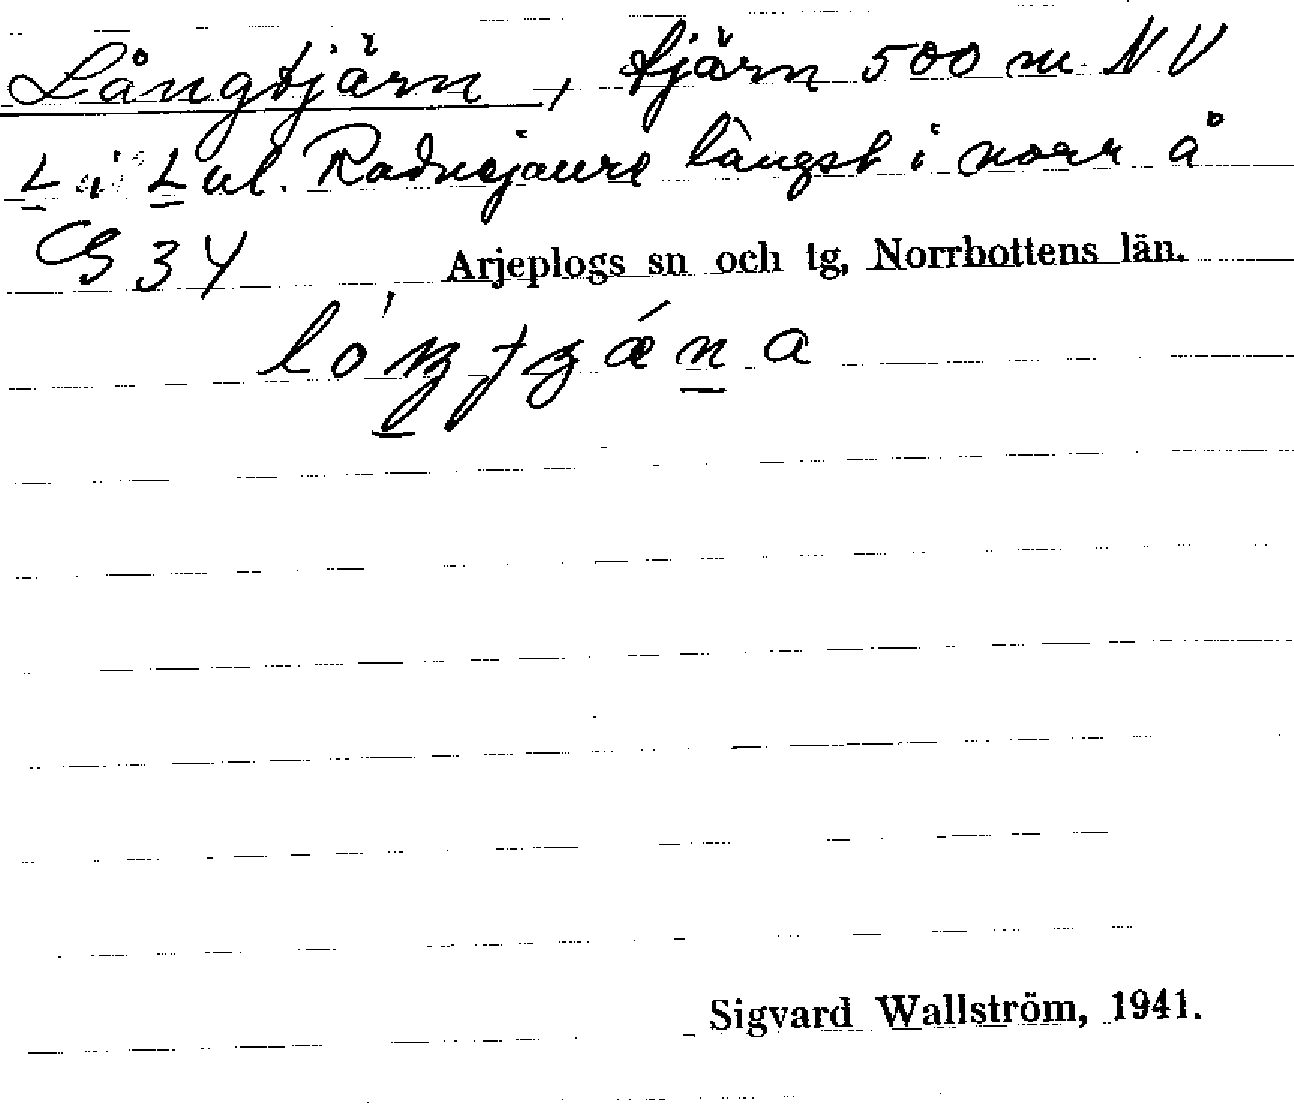 Långtjärn, tjärn 500 m NV
L i Lul. Radnejaure längst i norr å
G 34
Arjeplogs sn och tg, Norrbottens län.
Sigvard Wallström, 1941.